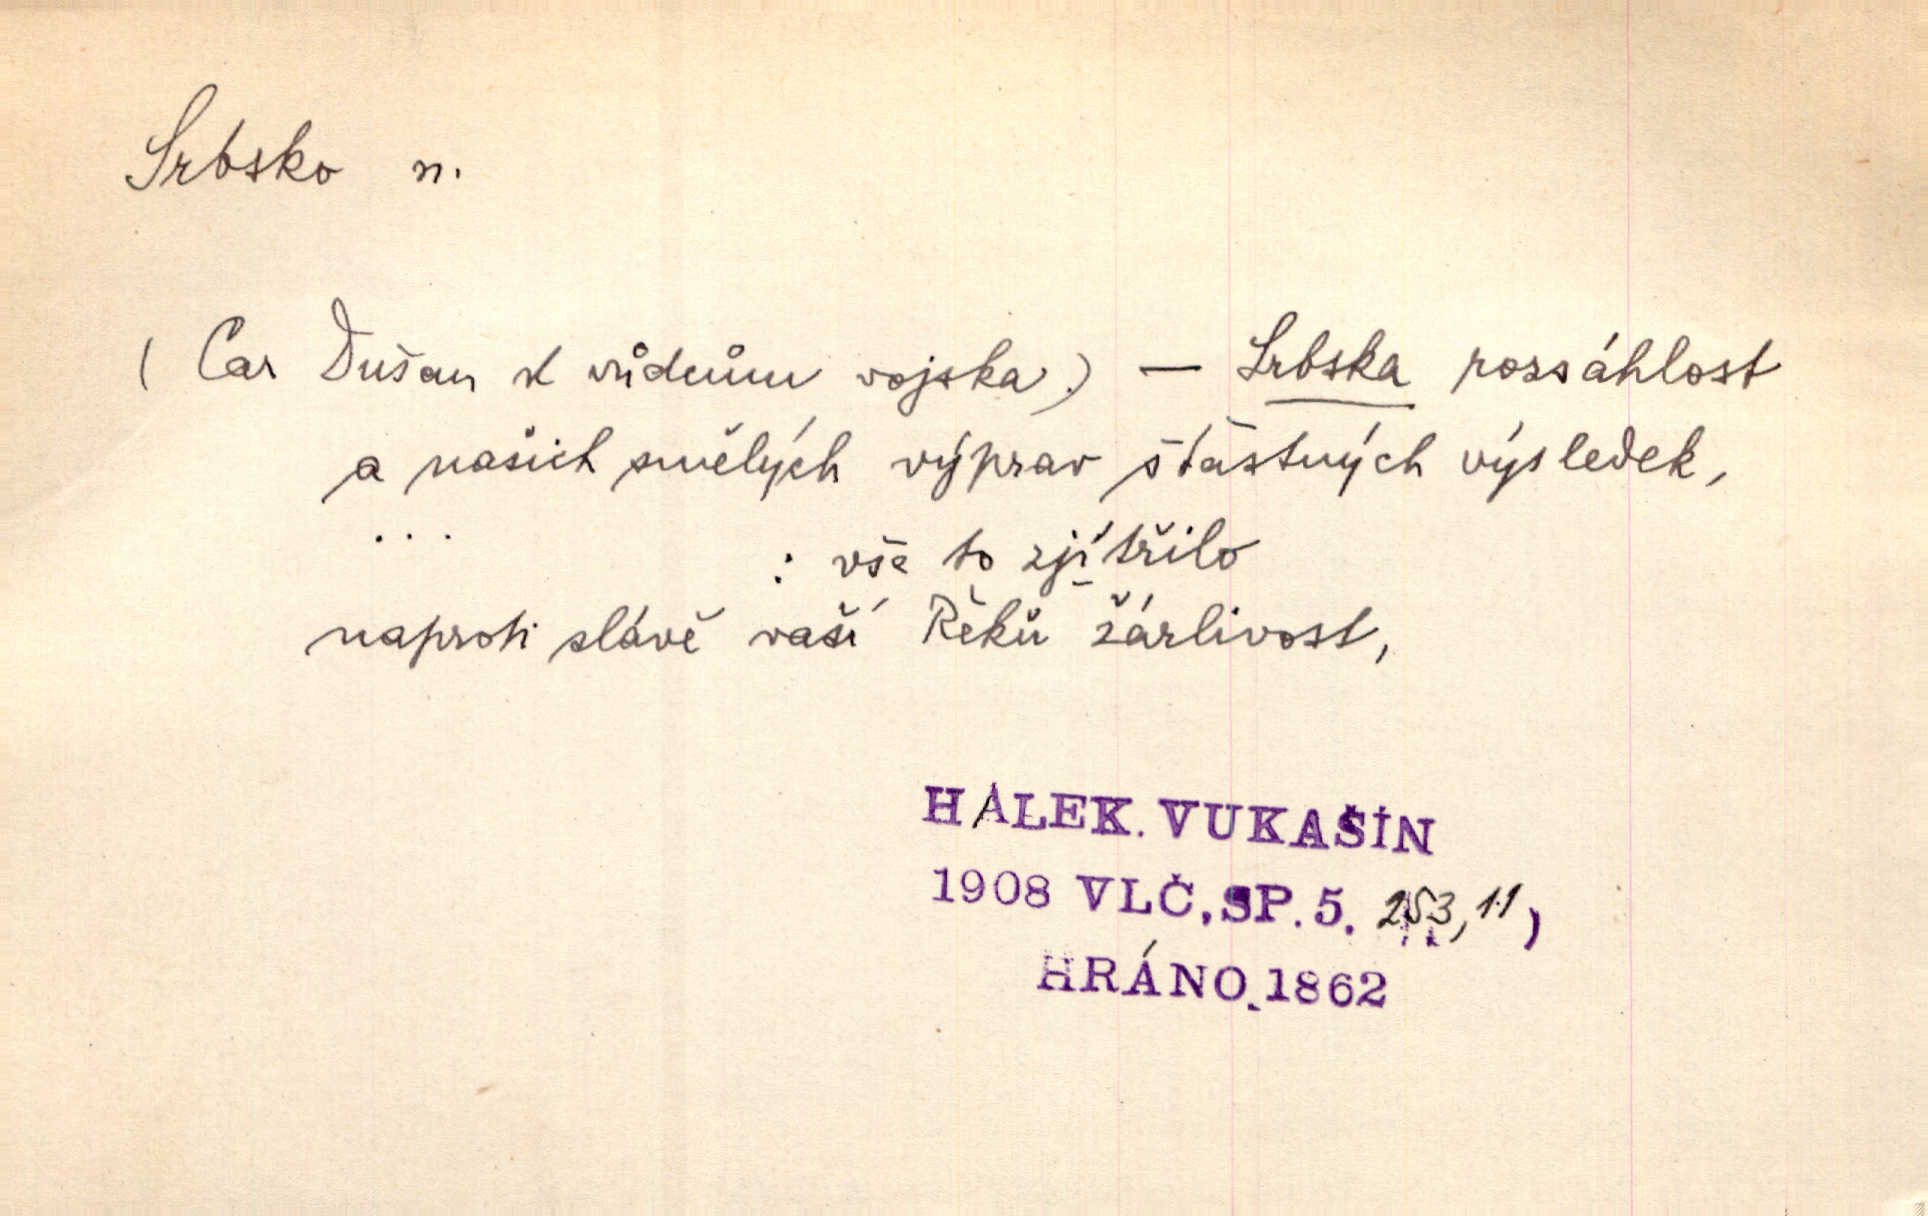 Srbsko n.
( Car Dušan k vůdcům vojska) — Srbska rozsáhlost
a našich smělých výprav šťastných výsledek,
... : vše to zjitřilo
naproti slávě vaší Řeků žárlivost,
HÁLEK. VUKAŠÍN
1908 VLČ, SP. 5. 253, 11,
HRÁNO. 1862